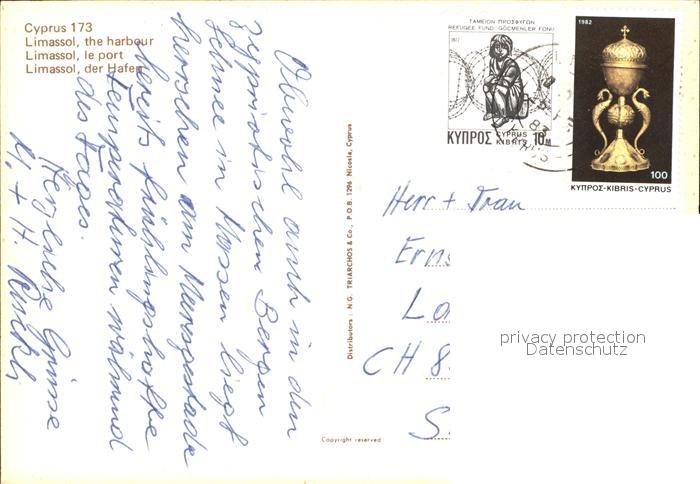 Cyprus 173
Limassol, the harbour
Limassol, le port
Limassol, der Hafen
Obwohl auch in den
zypriotischen Bergen
Schnee in Massen liegt
herrschen am Meeresgestade
bereits frühlingshafte
Temperaturen während
des Tages.
Herzliche Grüsse
+ H.
Distributors : N.G. TRIARCHOS & Co., P.O.B. 1296 Nicosia, Cyprus
Copyright reserved
ΤΑΜΕΙΟΝ ΠΡΟΣΦΥΓΩΝ
REFUGEE FUND GÖÇMENLER FONU
1977
ΚΥΠΡΟΣ CYPRUS KIBRIS 10M
1982
100
ΚΥΠΡΟΣ-KIBRIS-CYPRUS
83
Herr + Frau
Erns
Lo
CH 8
S
privacy protection
Datenschutz